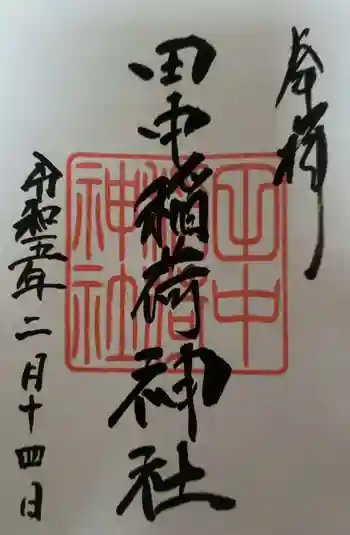 奉拝
田中稲荷神社
令和五年二月十四日
田中
稲荷
神社